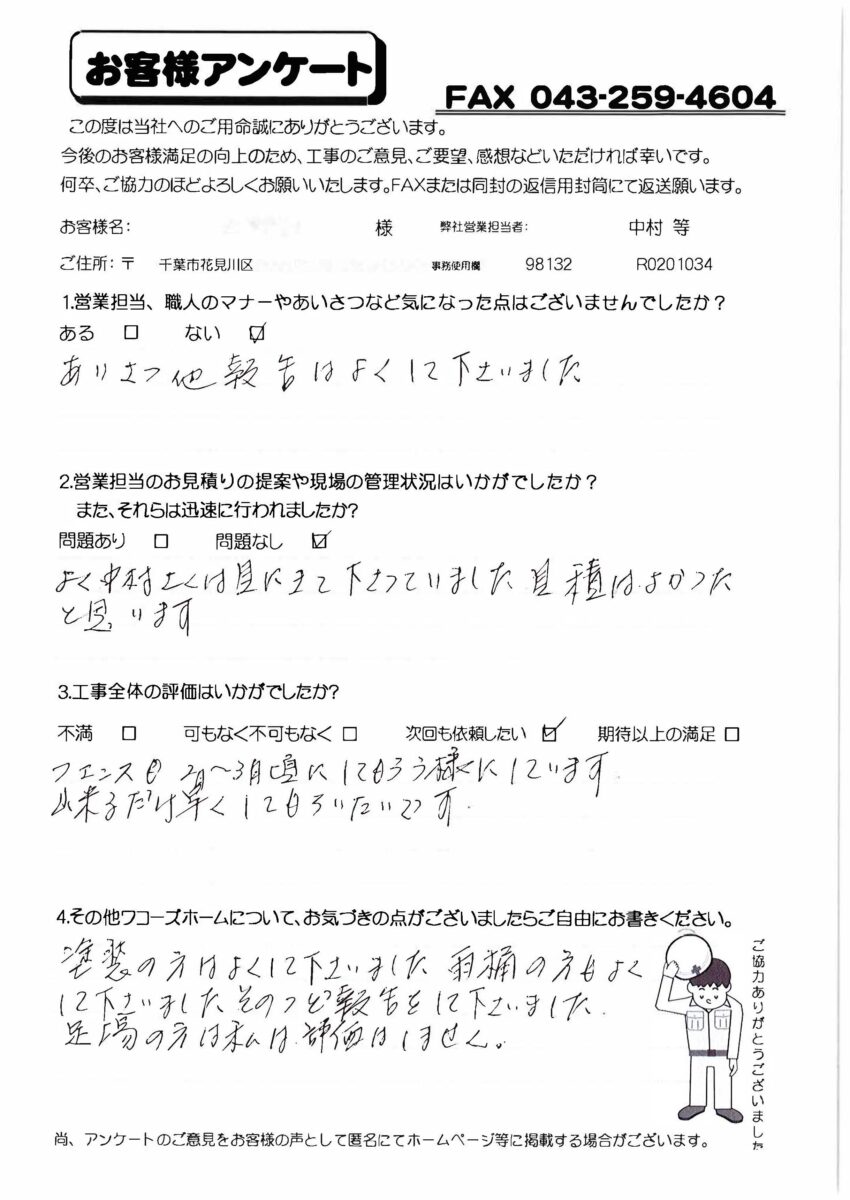 お客様アンケート
FAX 043-259-4604
この度は当社へのご用命誠にありがとうございます。
今後のお客様満足の向上のため、工事のご意見、ご要望、感想などいただければ幸いです。
何卒、ご協力のほどよろしくお願いいたします。FAXまたは同封の返信用封筒にて返送願います。
お客様名: 様 弊社営業担当者: 中村 等
ご住所:〒 千葉市花見川区 事務使用欄 98132 R0201034
1.営業担当、職人のマナーやあいさつなど気になった点はございませんでしたか?
ある □ ない ☑
あいさつ他報告はよくして下さいました
2.営業担当のお見積りの提案や現場の管理状況はいかがでしたか?
また、それらは迅速に行われましたか?
問題あり □ 問題なし ☑
よく中村さんは見にきて下さっていました見積はよかった
と思います
3.工事全体の評価はいかがでしたか?
不満 □ 可もなく不可もなく □ 次回も依頼したい ☑ 期待以上の満足 □
フェンスも2月〜3月頃にしてもらう様にしています
出来るだけ早くしてもらいたいです.
4.その他ワコーズホームについて、お気づきの点がございましたらご自由にお書きください。
塗装の方はよくして下さいました雨桶の方もよく
して下さいましたそのつど報告をして下さいました.
足場の方は私は評価はしません。
ご協力ありがとうございました
尚、アンケートのご意見をお客様の声として匿名にてホームページ等に掲載する場合がございます。